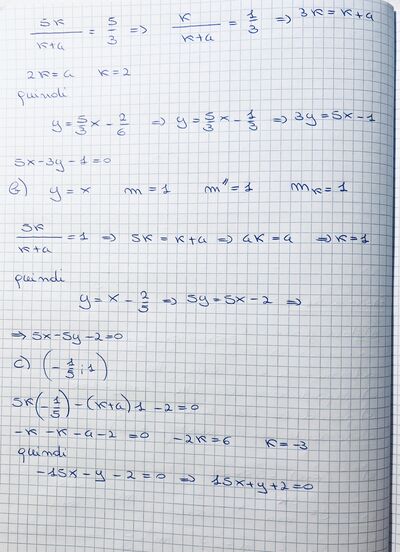 5k/(k+4) = 5/3 => k/(k+4) = 1/3 => 3k = k+4
2k=4 k=2
quindi
y = 5/3 x - 2/6 => y = 5/3 x - 1/3 => 3y = 5x - 1
5x-3y-1=0
b) y = x m = 1 m" = 1 mk = 1
5k/(k+4) = 1 => 5k = k+4 => 4k = 4 => k=1
quindi
y = x - 2/5 => 5y = 5x - 2 =>
=> 5x-5y-2=0
c) (-1/5 ; 1)
5k(-1/5) - (k+4) 1 - 2 = 0
-k -k -4 -2 = 0 -2k = 6 k = -3
quindi
-15x - y - 2 = 0 => 15x+y+2=0